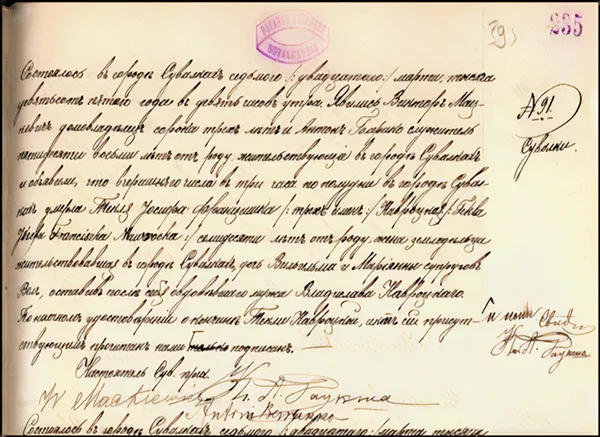 235
№ 91.
Сувалки.
Состоялось въ городѣ Сувалкахъ седьмого /:двадцатаго:/ марта тысяча
девятьсотъ пятого года въ девять часовъ утра. Явились Викторъ Мац-
кевичъ домовладѣлецъ сорока трехъ лѣтъ и Антонъ служитель
пятидесяти восьми лѣтъ отъ роду, жительствующіе въ городѣ Сувалкахъ
и объявили, что вчерашняго числа въ три часа по полудни въ городѣ Сувал-
кахъ умерла Текля Іосифа Францишка /:трехъ именъ:/ Навроцкая /:Tekla
Józefa Franciszka Nawrocka:/ семидесяти лѣтъ отъ роду, жена земледѣльца
жительствовавшая въ городѣ Сувалкахъ, дочь Вильгельма и Маріанны супруговъ
оставивъ послѣ себя овдовѣвшаго мужа Владислава Навроцкаго.
По наочномъ удостовѣреніи о кончинѣ Текли Навроцкой, актъ сей присут-
ствующимъ прочитанъ нами только подписанъ.
Настоятель Сув. при.
W Mackiewicz
Antoni
Состоялось въ городѣ Сувалкахъ седьмого /:двадцатаго:/ марта тысяча